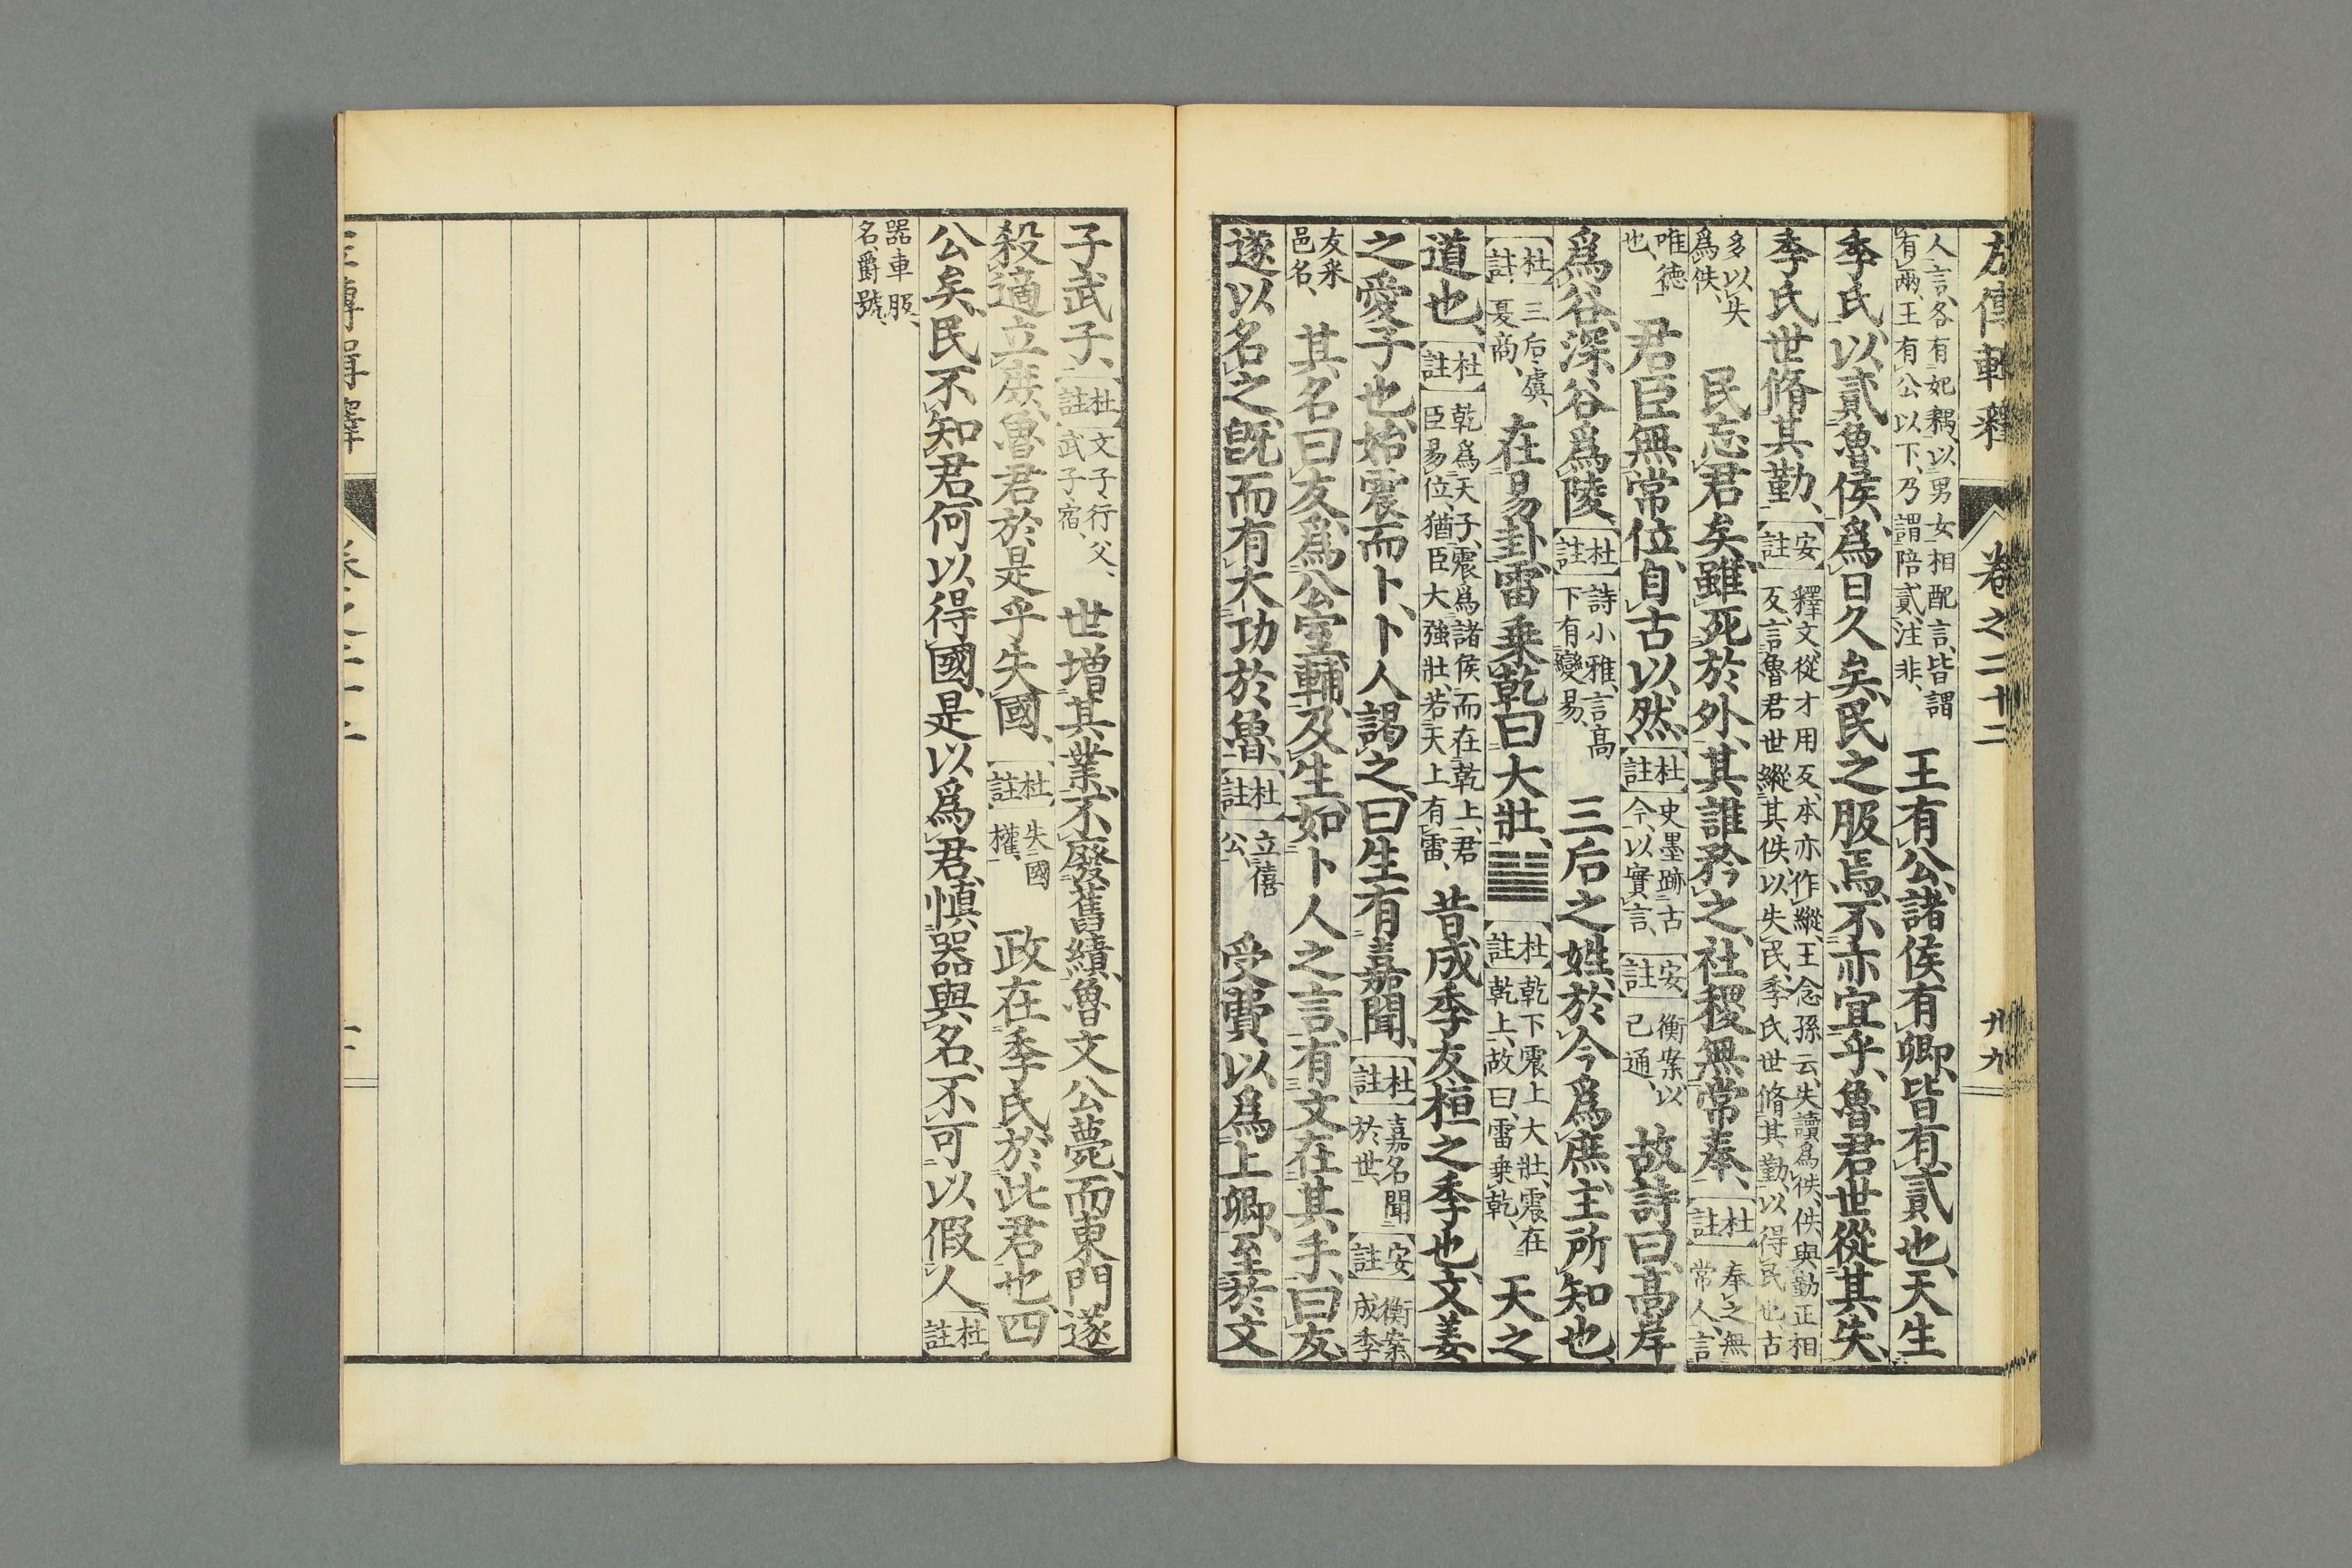 左傳輯釋 卷之二十二 廿九
人言、各有妃耦、以男女相配言、皆謂有兩、王有公以下、乃謂陪貳、注非、王有公、諸侯有卿、皆有貳也、天生
季氏、以貳魯侯、爲日久矣、民之服焉、不亦宜乎、魯君世從其失、
季氏世脩其勤、【安註】釋文、從才用反、本亦作縱、王念孫云、失讀爲佚、佚與勤正相反、言魯君世縱其佚、以失民、季氏世脩其勤、以得民也、古
多以失爲佚、民忘君矣、雖死於外、其誰矜之、社稷無常奉、【杜註】奉之無常人、言
唯德也、君臣無常位、自古以然、【杜註】史墨跡古今、以實言、【安註】衡案、以已通、故詩曰、高岸
爲谷、深谷爲陵、【杜註】詩小雅、言高下有變易、三后之姓、於今爲庶、主所知也、
【杜註】三后、虞夏商、在易卦、雷乘乾曰大壯、【杜註】乾下震上大壯、震在乾上、故曰、雷乘乾、天之
道也、【杜註】乾爲天子、震爲諸侯、而在乾上、君臣易位、猶臣大強壯、若天上有雷、昔成季友、桓之季也、文姜
之愛子也、始震而卜、卜人謁之、曰生有嘉聞、【杜註】嘉名聞於世、【安註】衡案、成季
友采邑名、其名曰友、爲公室輔、及生、如卜人之言、有文在其手、曰友、
遂以名之、既而有大功於魯、【杜註】立僖公、受費、以爲上卿、至於文
子武子、【杜註】文子行父、武子宿、世增其業、不廢舊績、魯文公薨、而東門遂
殺適立庶、魯君於是乎失國、【杜註】失國權、政在季氏、於此君也、四
公矣、民不知君、何以得國、是以爲君、愼器與名、不可以假人、【杜註】
器、車服、名、爵號、